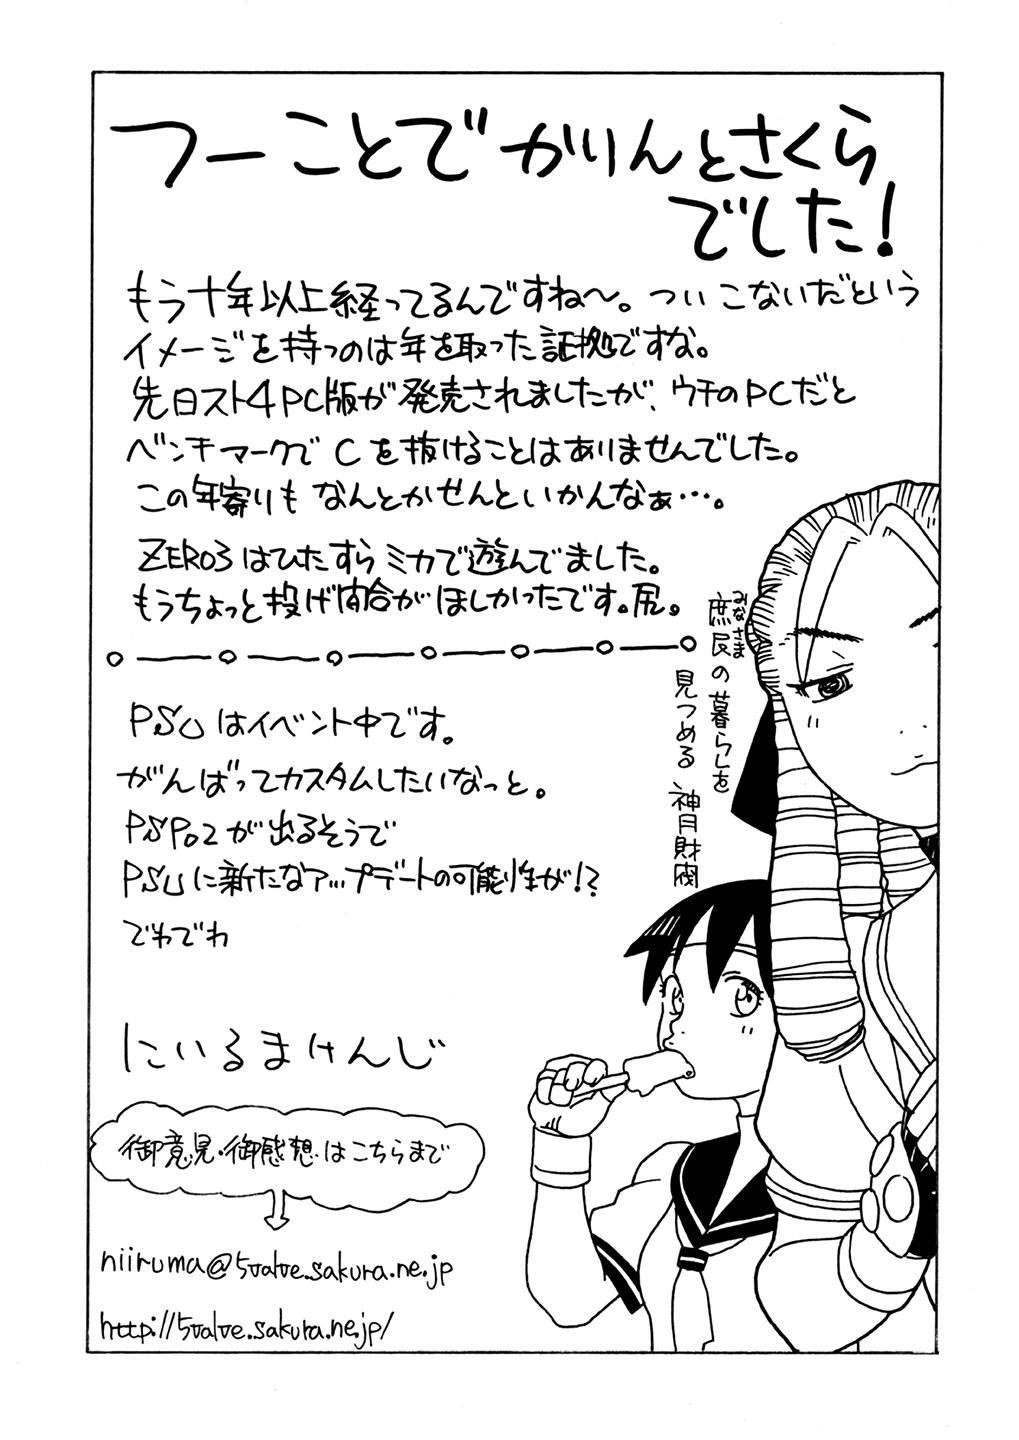 つーことでかりんとさくら
でした!
もう十年以上経ってるんですね〜。ついこないだという
イメージを持つのは年を取った証拠ですな。
先日スト4PC版が発売されましたが、ウチのPCだと
ベンチマークでCを抜けることはありませんでした。
この年寄りもなんとかせんといかんなぁ…。
ZERO3はひたすらミカで遊んでました。
もうちょっと投げ間合がほしかったです。尻。
庶民の暮らしを
みなさま
見つめる
神月財閥
PSUはイベント中です。
がんばってカスタムしたいなっと。
PSPo2が出るそうで
PSUに新たなアップデートの可能性が!?
でわでわ
にいるまけんじ
御意見・御感想はこちらまで
niiruma@5valve.sakura.ne.jp
http://5valve.sakura.ne.jp/